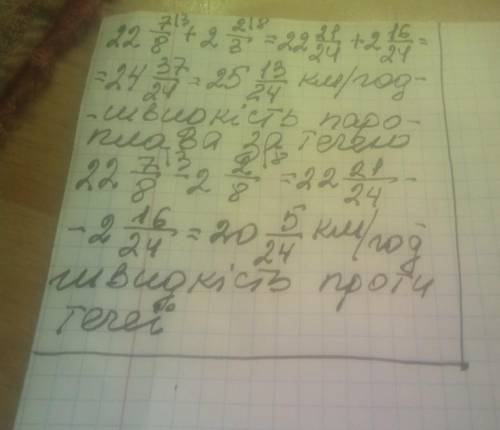 22 7/8 |3 + 2 2/3 |8 = 22 21/24 + 2 16/24 =
= 24 37/24 = 25 13/24 км/год -
- швидкість паро-
плава за течею
22 7/8 |3 - 2 2/8 |8 = 22 21/24 -
- 2 16/24 = 20 5/24 км/год
швидкість проти
течеї